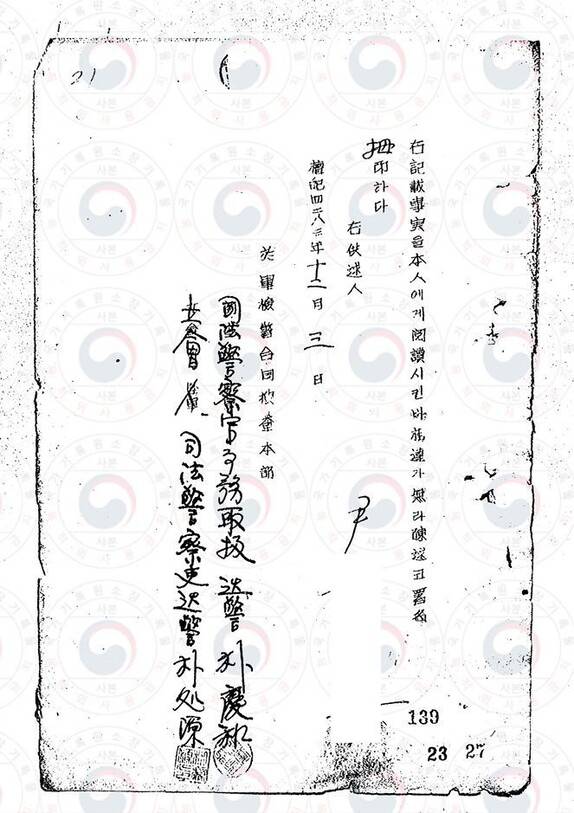 21
右記載事実을本人에게閱讀시킨바誤違가無라陳述고署名
拇印하다
右供述人
尹
檀紀四二八三年十二月三日
英軍檢警合同捜査本部
司法警察官事務取扱 巡警 朴慶和
立會人 司法警察吏巡警朴処源
139
23 27